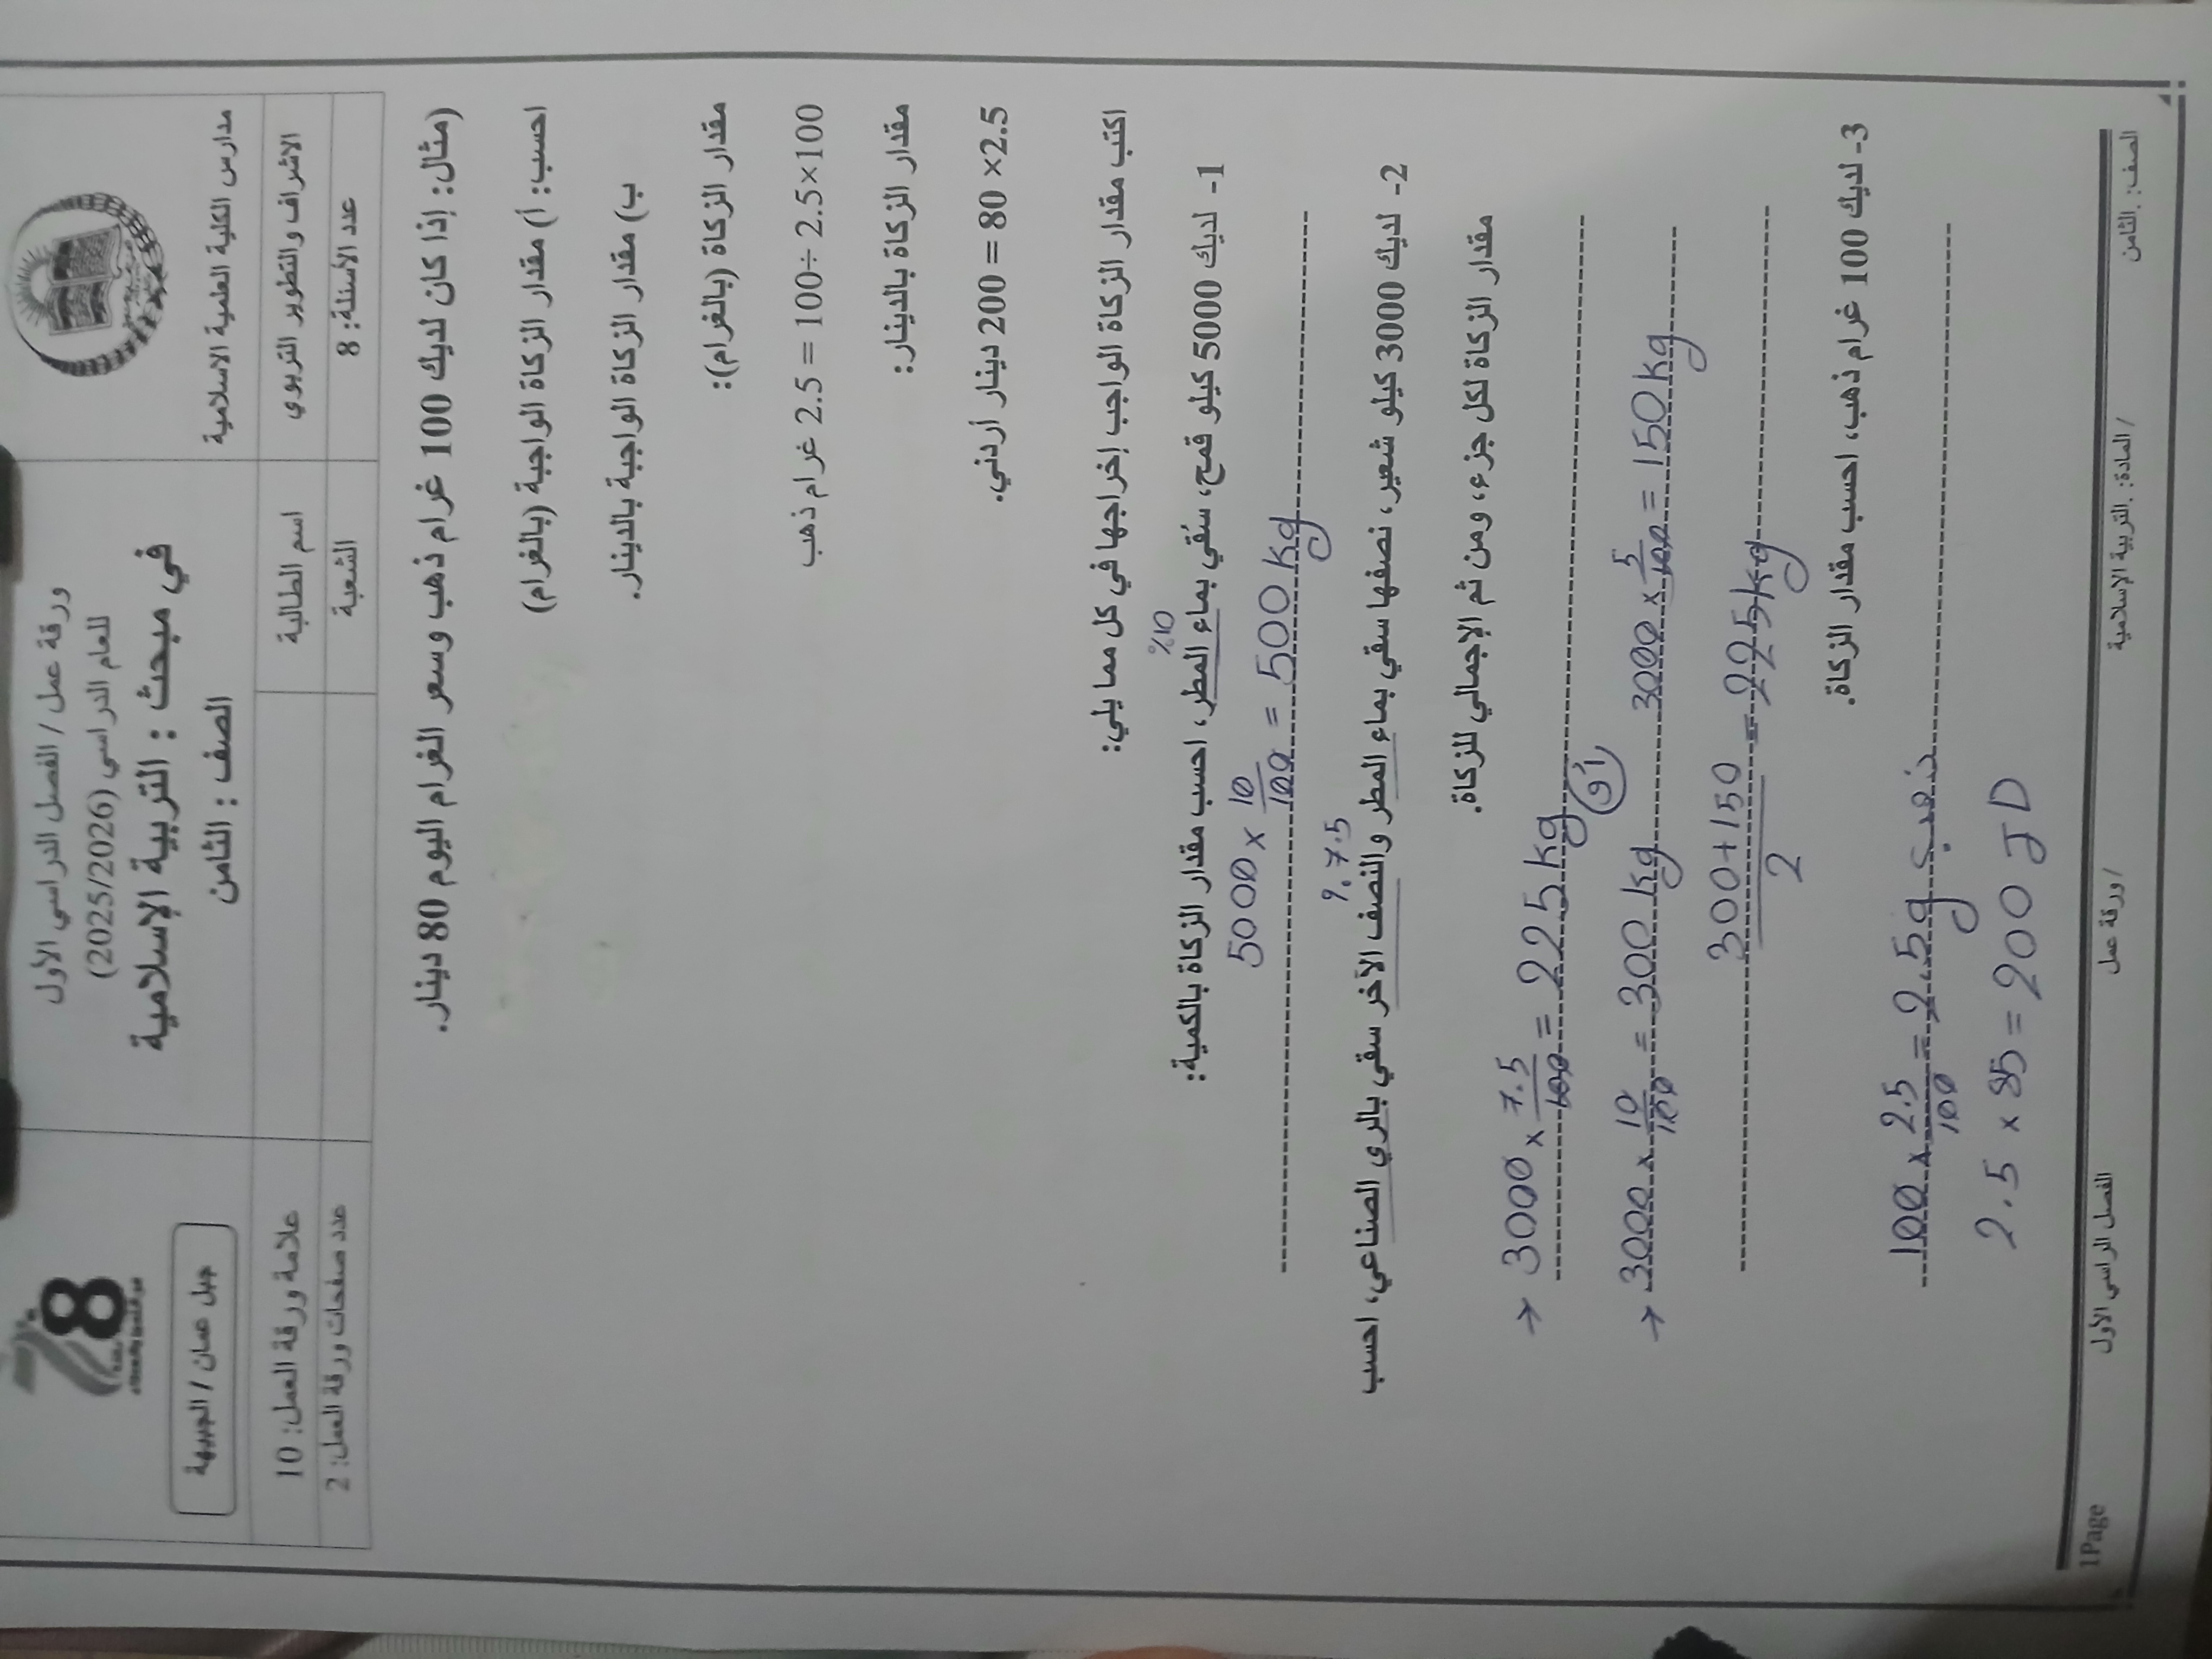 مدارس الكلية العلمية الاسلامية
ورقة عمل / الفصل الدراسي الأول
للعام الدراسي (2025/2026)
في مبحث : التربية الإسلامية
الصف : الثامن
جبل عمان / الجبيهة
الاشراف والتطوير التربوي
اسم الطالبة
علامة ورقة العمل: 10
عدد الأسئلة: 8
الشعبة
عدد صفحات ورقة العمل: 2
(مثال: إذا كان لديك 100 غرام ذهب وسعر الغرام اليوم 80 دينار.
احسب: أ) مقدار الزكاة الواجبة (بالغرام)
ب) مقدار الزكاة الواجبة بالدينار.
مقدار الزكاة (بالغرام):
2.5×100 ÷100 = 2.5 غرام ذهب
مقدار الزكاة بالدينار:
2.5× 80 = 200 دينار أردني.
اكتب مقدار الزكاة الواجب إخراجها في كل مما يلي:
%10
1- لديك 5000 كيلو قمح، سُقي بماء المطر، احسب مقدار الزكاة بالكمية:
5000 × 10/100 = 500 kg
%7.5
2- لديك 3000 كيلو شعير، نصفها سقي بماء المطر والنصف الآخر سقي بالري الصناعي، احسب
مقدار الزكاة لكل جزء، ومن ثم الإجمالي للزكاة.
→ 3000 × 7.5/100 = 225 kg
أو
→ 3000 × 10/100 = 300 kg 3000 × 5/100 = 150 kg
300+150/2 = 225 kg
3- لديك 100 غرام ذهب، احسب مقدار الزكاة.
100 × 2.5/100 = 2.5 g ذهب
2.5 × 85 = 200 JD
1Page
الفصل الراسي الأول
/ ورقة عمل
/ المادة: .التربية الإسلامية
الصف: .الثامن